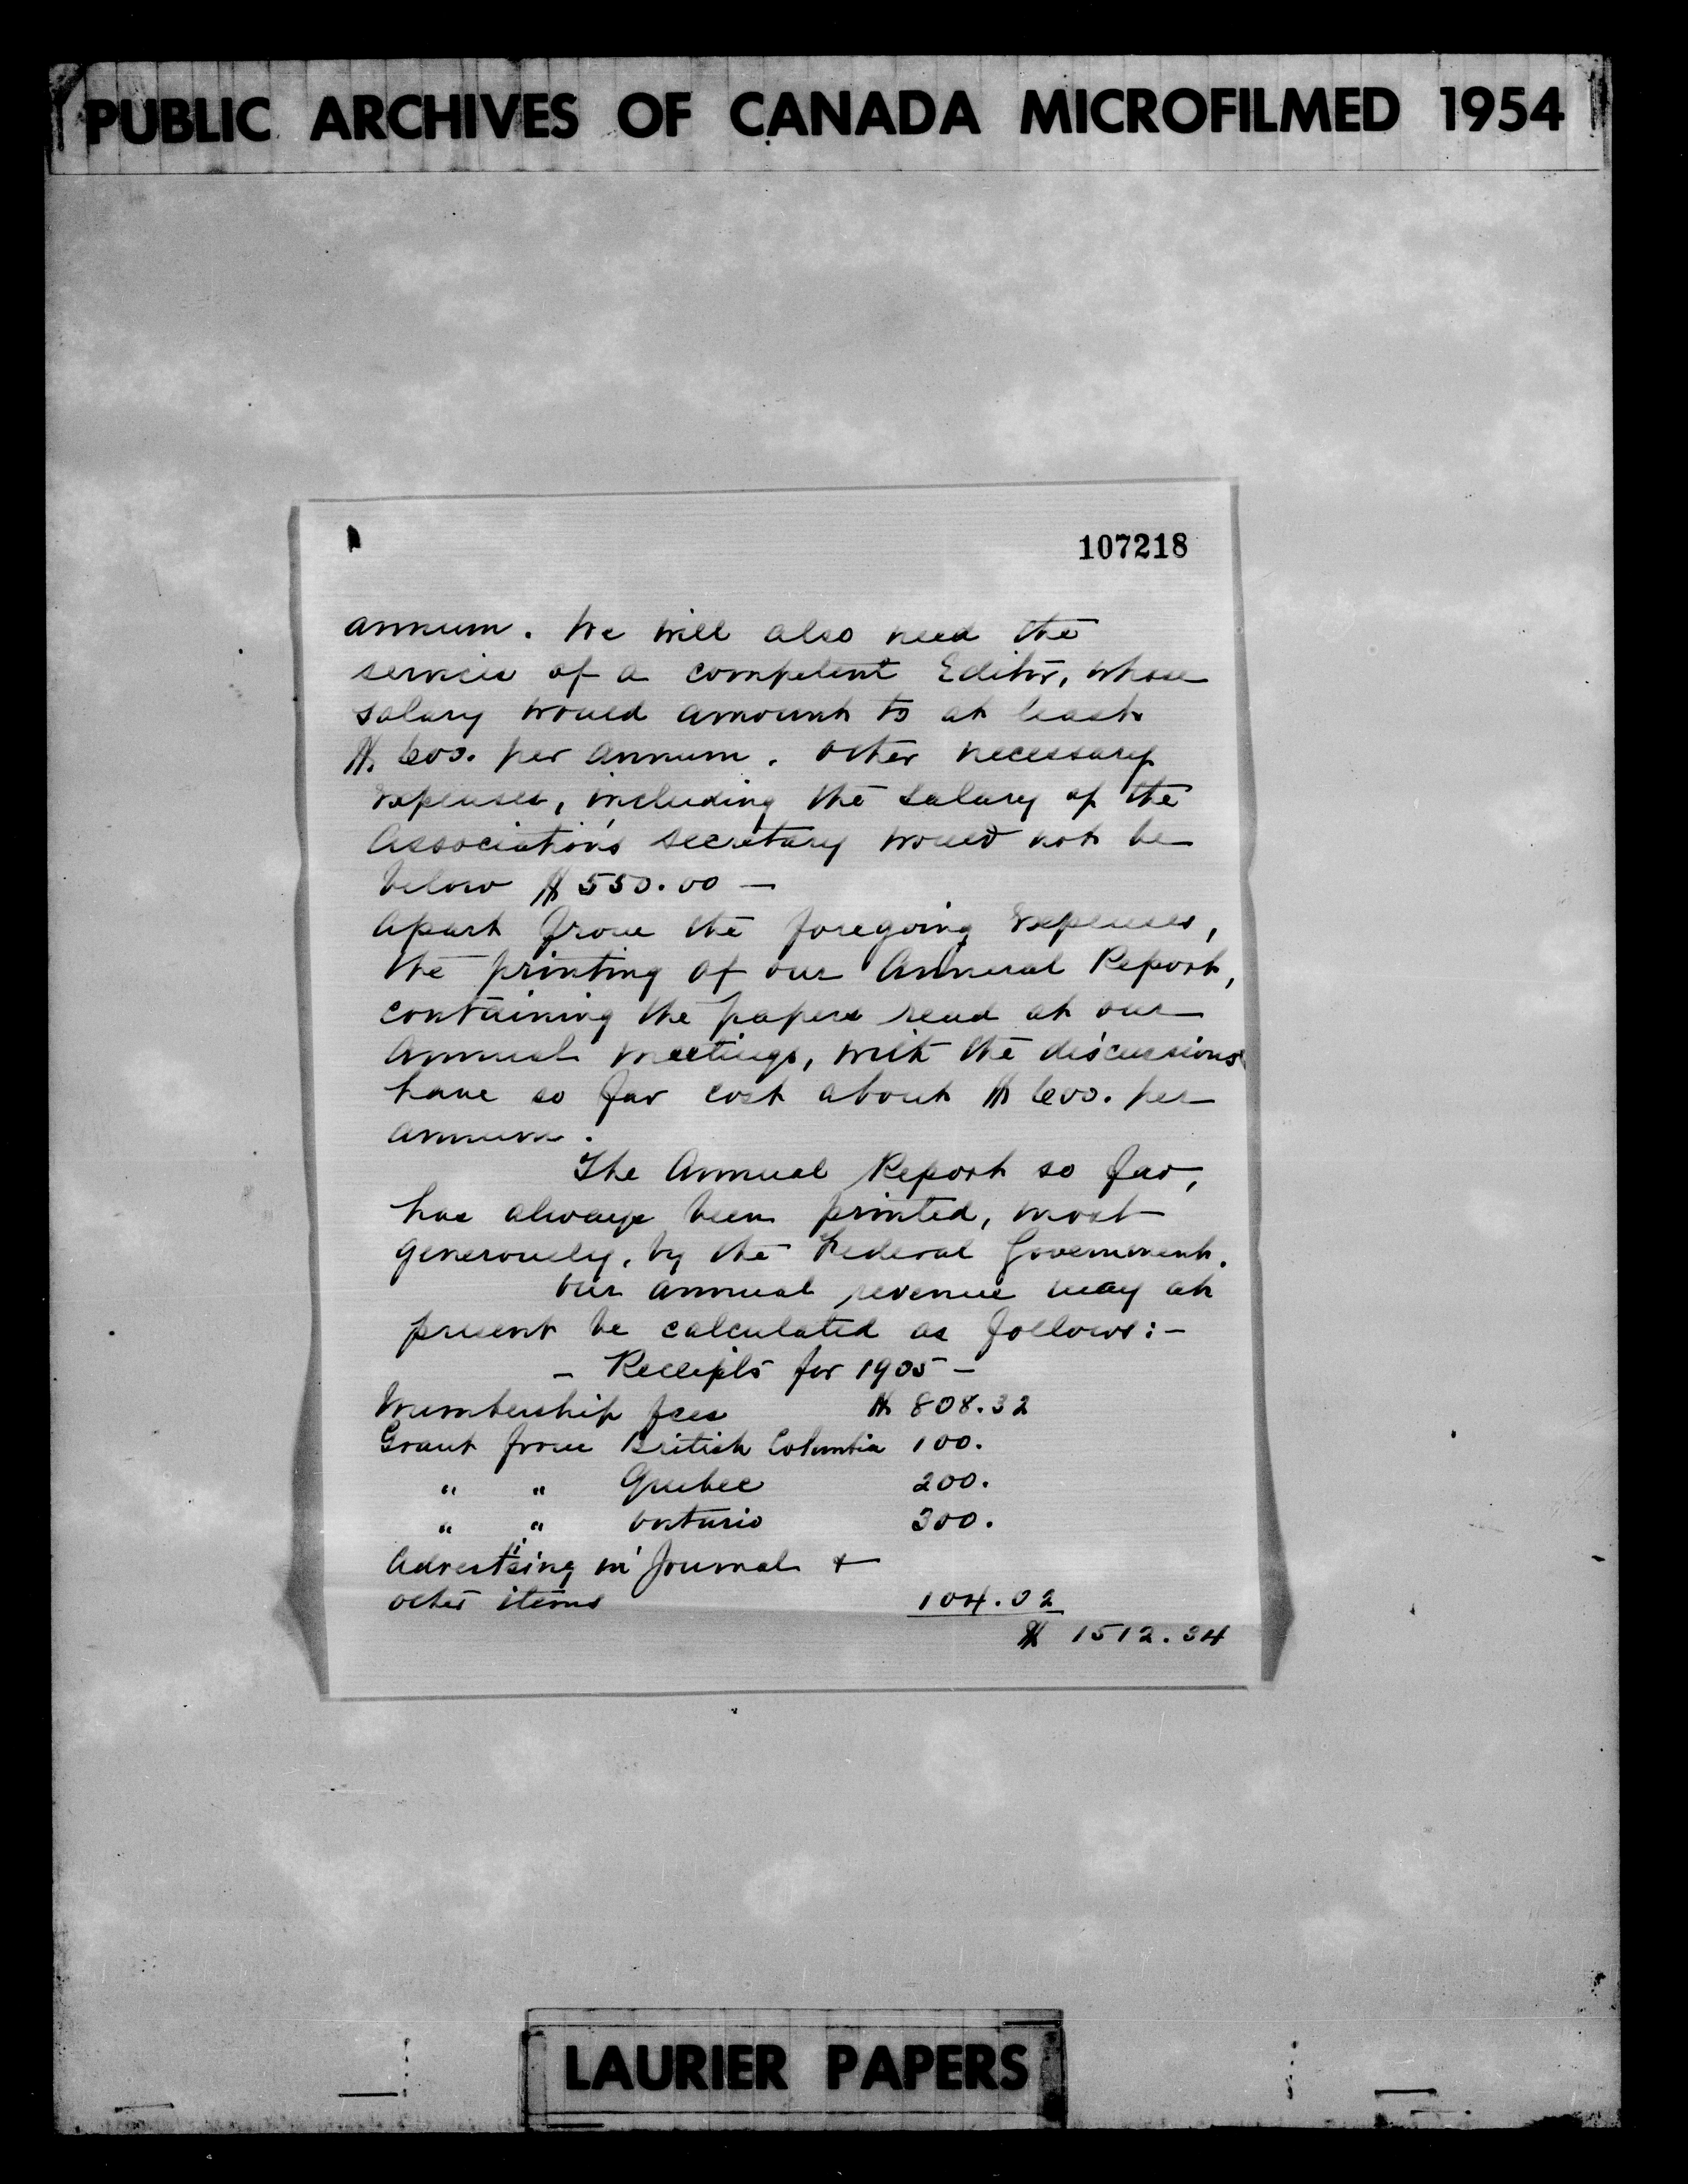 PUBLIC ARCHIVES OF CANADA MICROFILMED 1954
107218
annum. We will also need the
services of a competent Editor, whose
salary would amount to at least
$600. per annum. Other necessary
expenses, including the salary of the
Association's secretary would not be
below $550.00 —
Apart from the foregoing expenses,
the printing of our Annual Report,
containing the papers read at our
annual meetings, with the discussions
have so far cost about $600. per
annum.
The Annual Report so far,
has always been printed, most
generously, by the Federal Government.
Our annual revenue may at
present be calculated as follows:—
— Receipts for 1905 —
Membership fees $808.32
Grant from British Columbia 100.
" " Quebec 200.
" " Ontario 300.
Advertising in Journal +
other items 104.02
$ 1512.34
LAURIER PAPERS